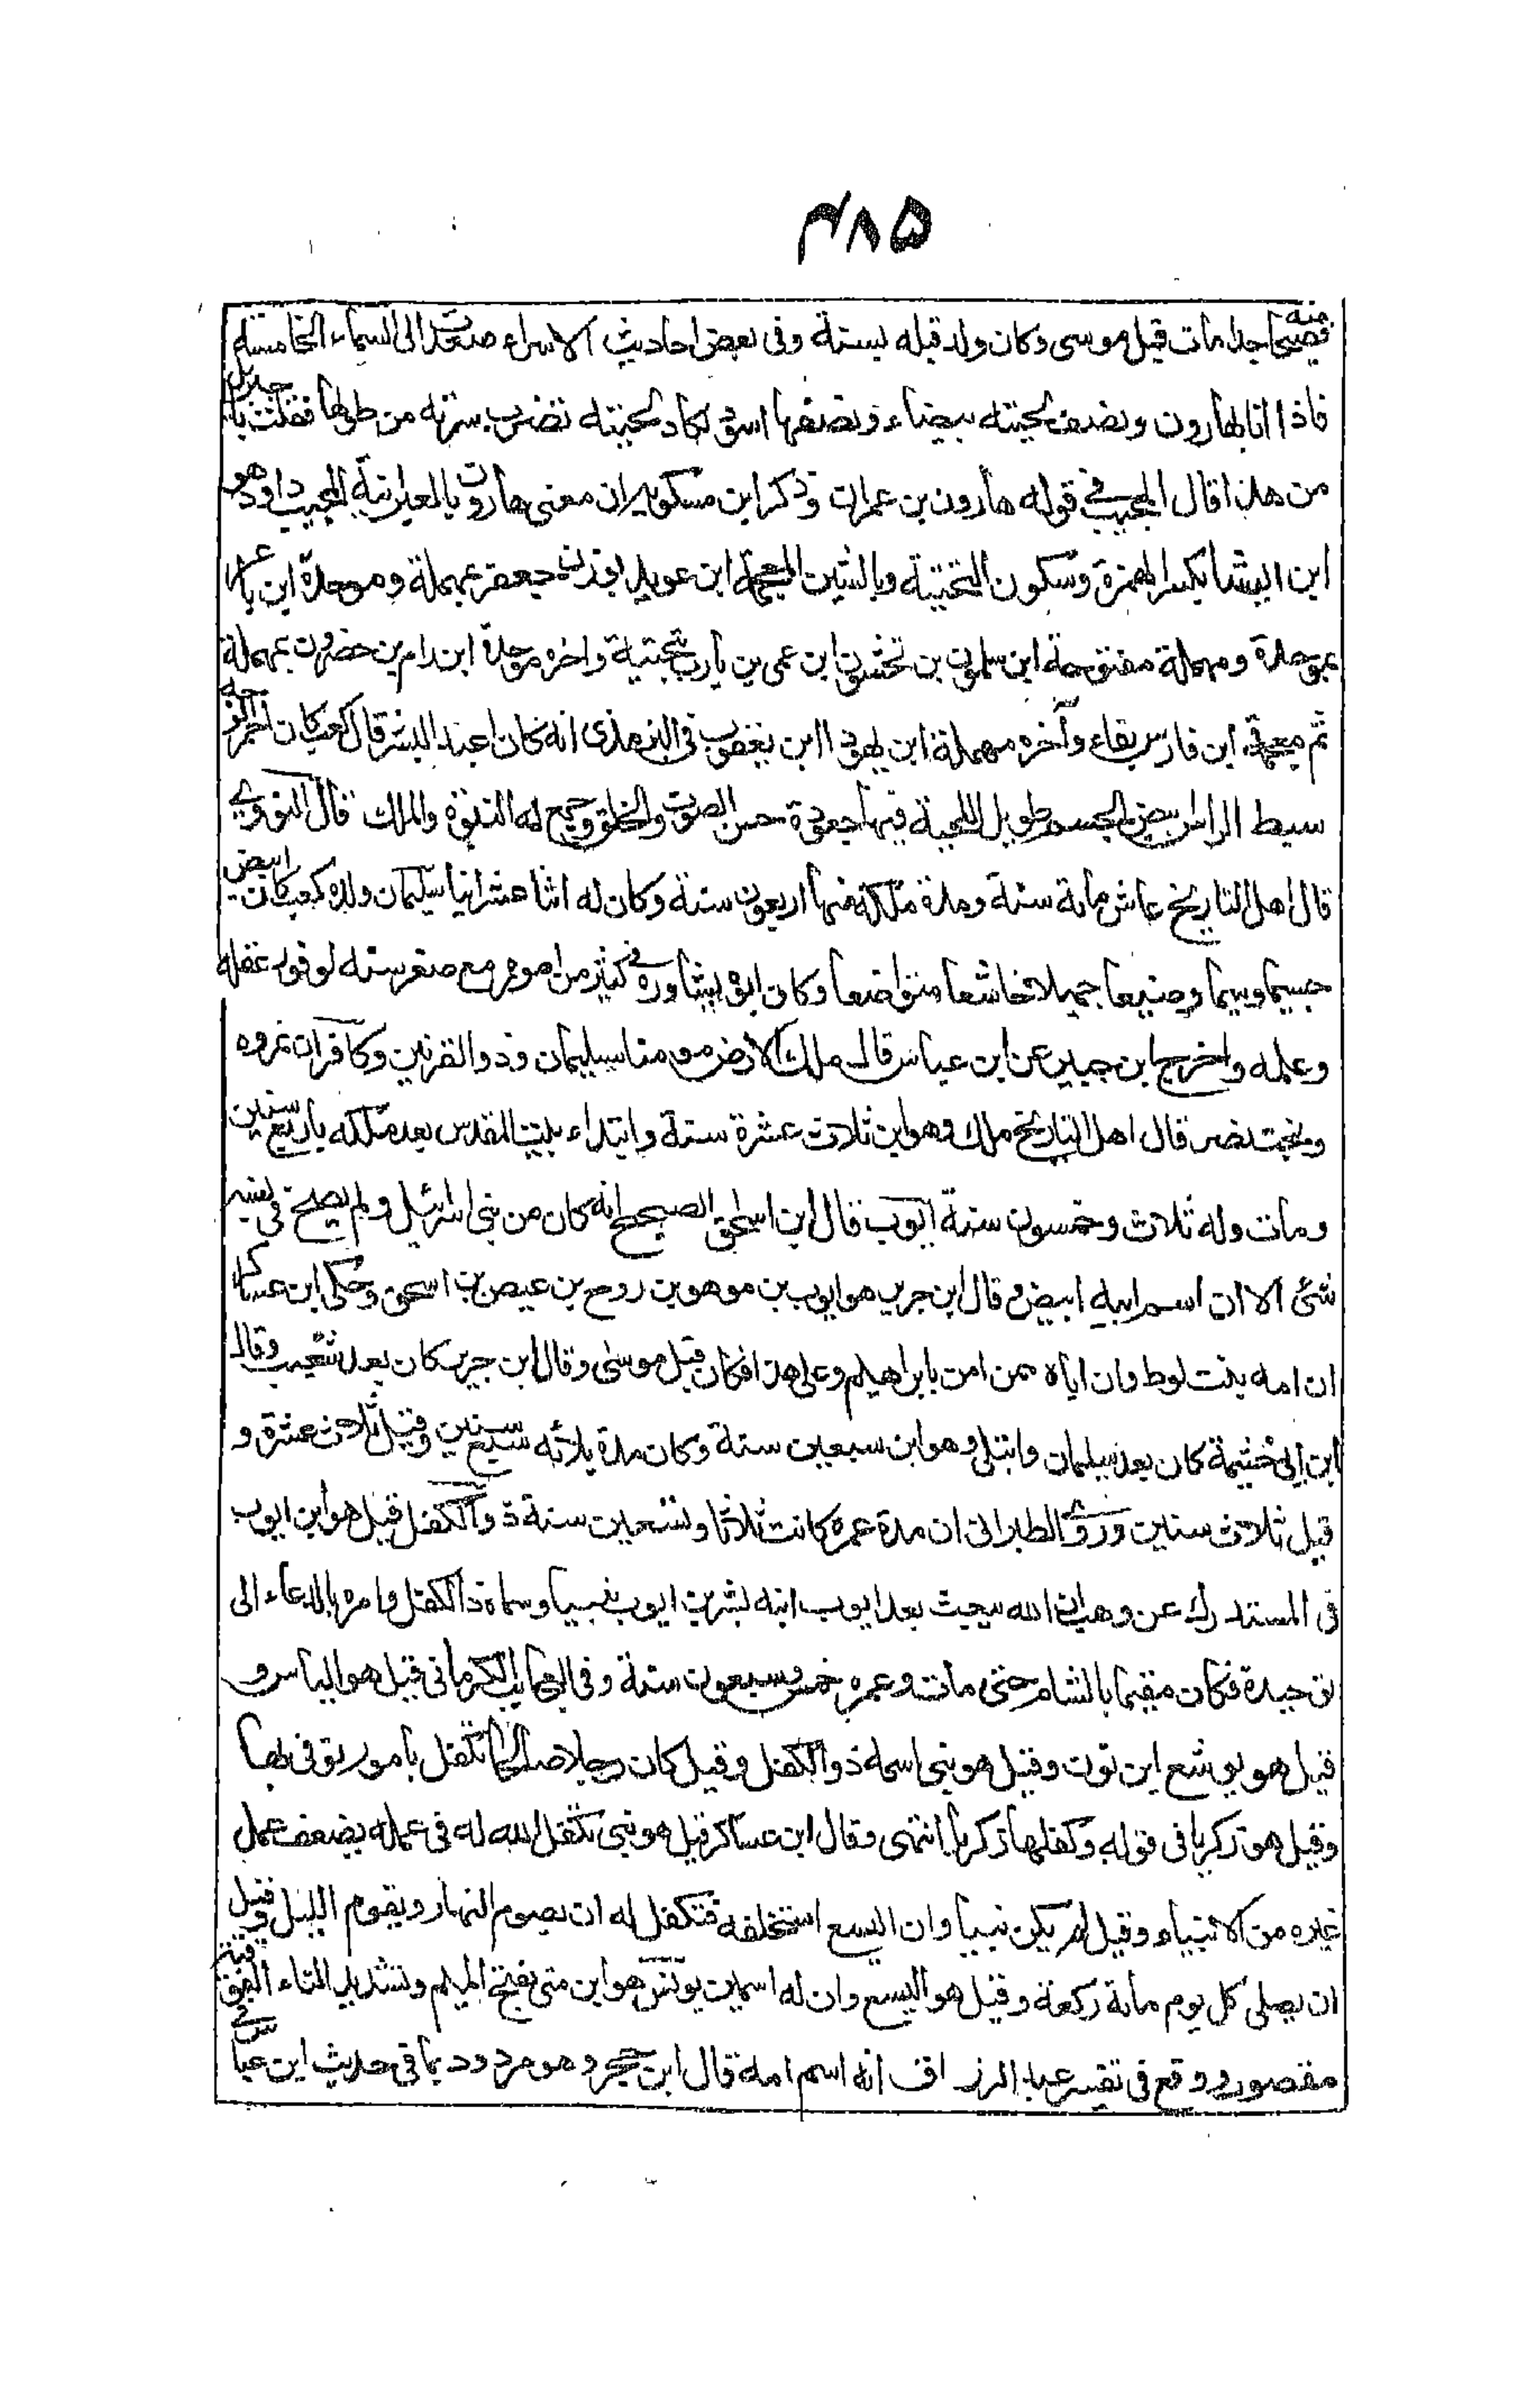 ۴۸۵
منه
فصيحا جدا مات قبل موسى وكان ولد قبله بسنة وفى بعض احاديث الاسراء صعدت الى السماء الخامسة
فاذا انا بهارون ونصف لحيته بيضاء ونصفها اسود تكاد لحيته تضرب سرته من طولها فقلت يا جبريل
من هذا قال المحبب فى قومه هارون بن عمران وذكر ابن مسكويه ان معنى هارون بالعبرانية المحبب داود هو
ابن ايشا بكسر الهمزة وسكون التحتية وبالشين المعجمة ابن عوبد بوزن جعفر بمهملة وموحدة ابن باعر
بموحدة ومهملة مفتوحة ابن سلمون بن نخشون ابن عمى بن يارب بتحتية واخره موحدة ابن رام بن حضرون بمهملة
ثم معجمة ابن فارس بفاء وآخره مهملة ابن يهودا ابن يعقوب فى الترمذى انه كان اعبد البشر قال كعب كان احمر الوجه
سبط الراس ابيض الجسم طويل اللحية فيها جعودة حسن الصوت والخلق وجمع له النبوة والملك قال النووي
قال اهل التاريخ عاش مائة سنة ومدة ملكه منها اربعون سنة وكان له اثنا عشر ابنا سليمان ولده كعب كان ابيض
جسيما وسيما وضيئا جميلا خاشعا متواضعا وكان ابوه يشاوره فى كثير من اموره مع صغر سنه لوفور عقله
وعلمه واخرج ابن جبير عن ابن عباس قال ملك الارض مومنا سليمان وذو القرنين وكافران نمروه
وبخت نصر قال اهل التاريخ ملك وهو ابن ثلاث عشرة سنة وابتداء بيت المقدس بعد ملكه باربع سنين
ومات وله ثلاث وخمسون سنة ايوب قال ابن اسحق الصحيح انه كان من بنى اسرائيل ولم يصح فى نسبه
شئ الا ان اسم ابيه ابيض وقال ابن جرير هو ايوب بن موهو بن روح بن عيص بن اسحق وحكى ابن عساكر
ان امه بنت لوط وان اباه ممن امن بابراهيم وعلى هذا فكان قبل موسى وقال ابن جرير كان بعد شعيب وقال
ابن ابى خثيمة كان بعد سليمان وابتلى وهو ابن سبعين سنة وكان مدة بلائه سبع سنين وقيل ثلاث عشرة و
قيل ثلاث سنين وروى الطبرانى ان مدة عمره كانت ثلاثا وتسعين سنة ذو الكفل قيل هو ابن ايوب
فى المستدرك عن وهب ان الله بعث بعد ايوب ابنه بشر بن ايوب نبيا وسماه ذا الكفل وامره بالدعاء الى
توحيده فكان مقيما بالشام حتى مات وعمره خمس وسبعون سنة وفى العجايب للكرمانى قيل هو الياس و
قيل هو يوشع ابن نون وقيل هو نبى اسمه ذو الكفل وقيل كان رجلا صالحا تكفل بامور يوفى بها
وقيل هو زكريا فى قوله وكفلها زكريا انتهى وقال ابن عساكر قيل هو نبى تكفل الله له فى عمله بضعف عمل
غيره من الانبياء وقيل لم يكن نبيا وان اليسع استخلفه فتكفل له ان يصوم النهار ويقوم الليل وقيل
ان يصلى كل يوم مائة ركعة وقيل هو اليسع وان له اسمين يونس هو ابن متى بفتح الميم وتشديد التاء الفوقية
مقصور ووقع فى تفسير عبد الرزاق انه اسم امه قال ابن حجر وهو مردود بما فى حديث ابن عباس